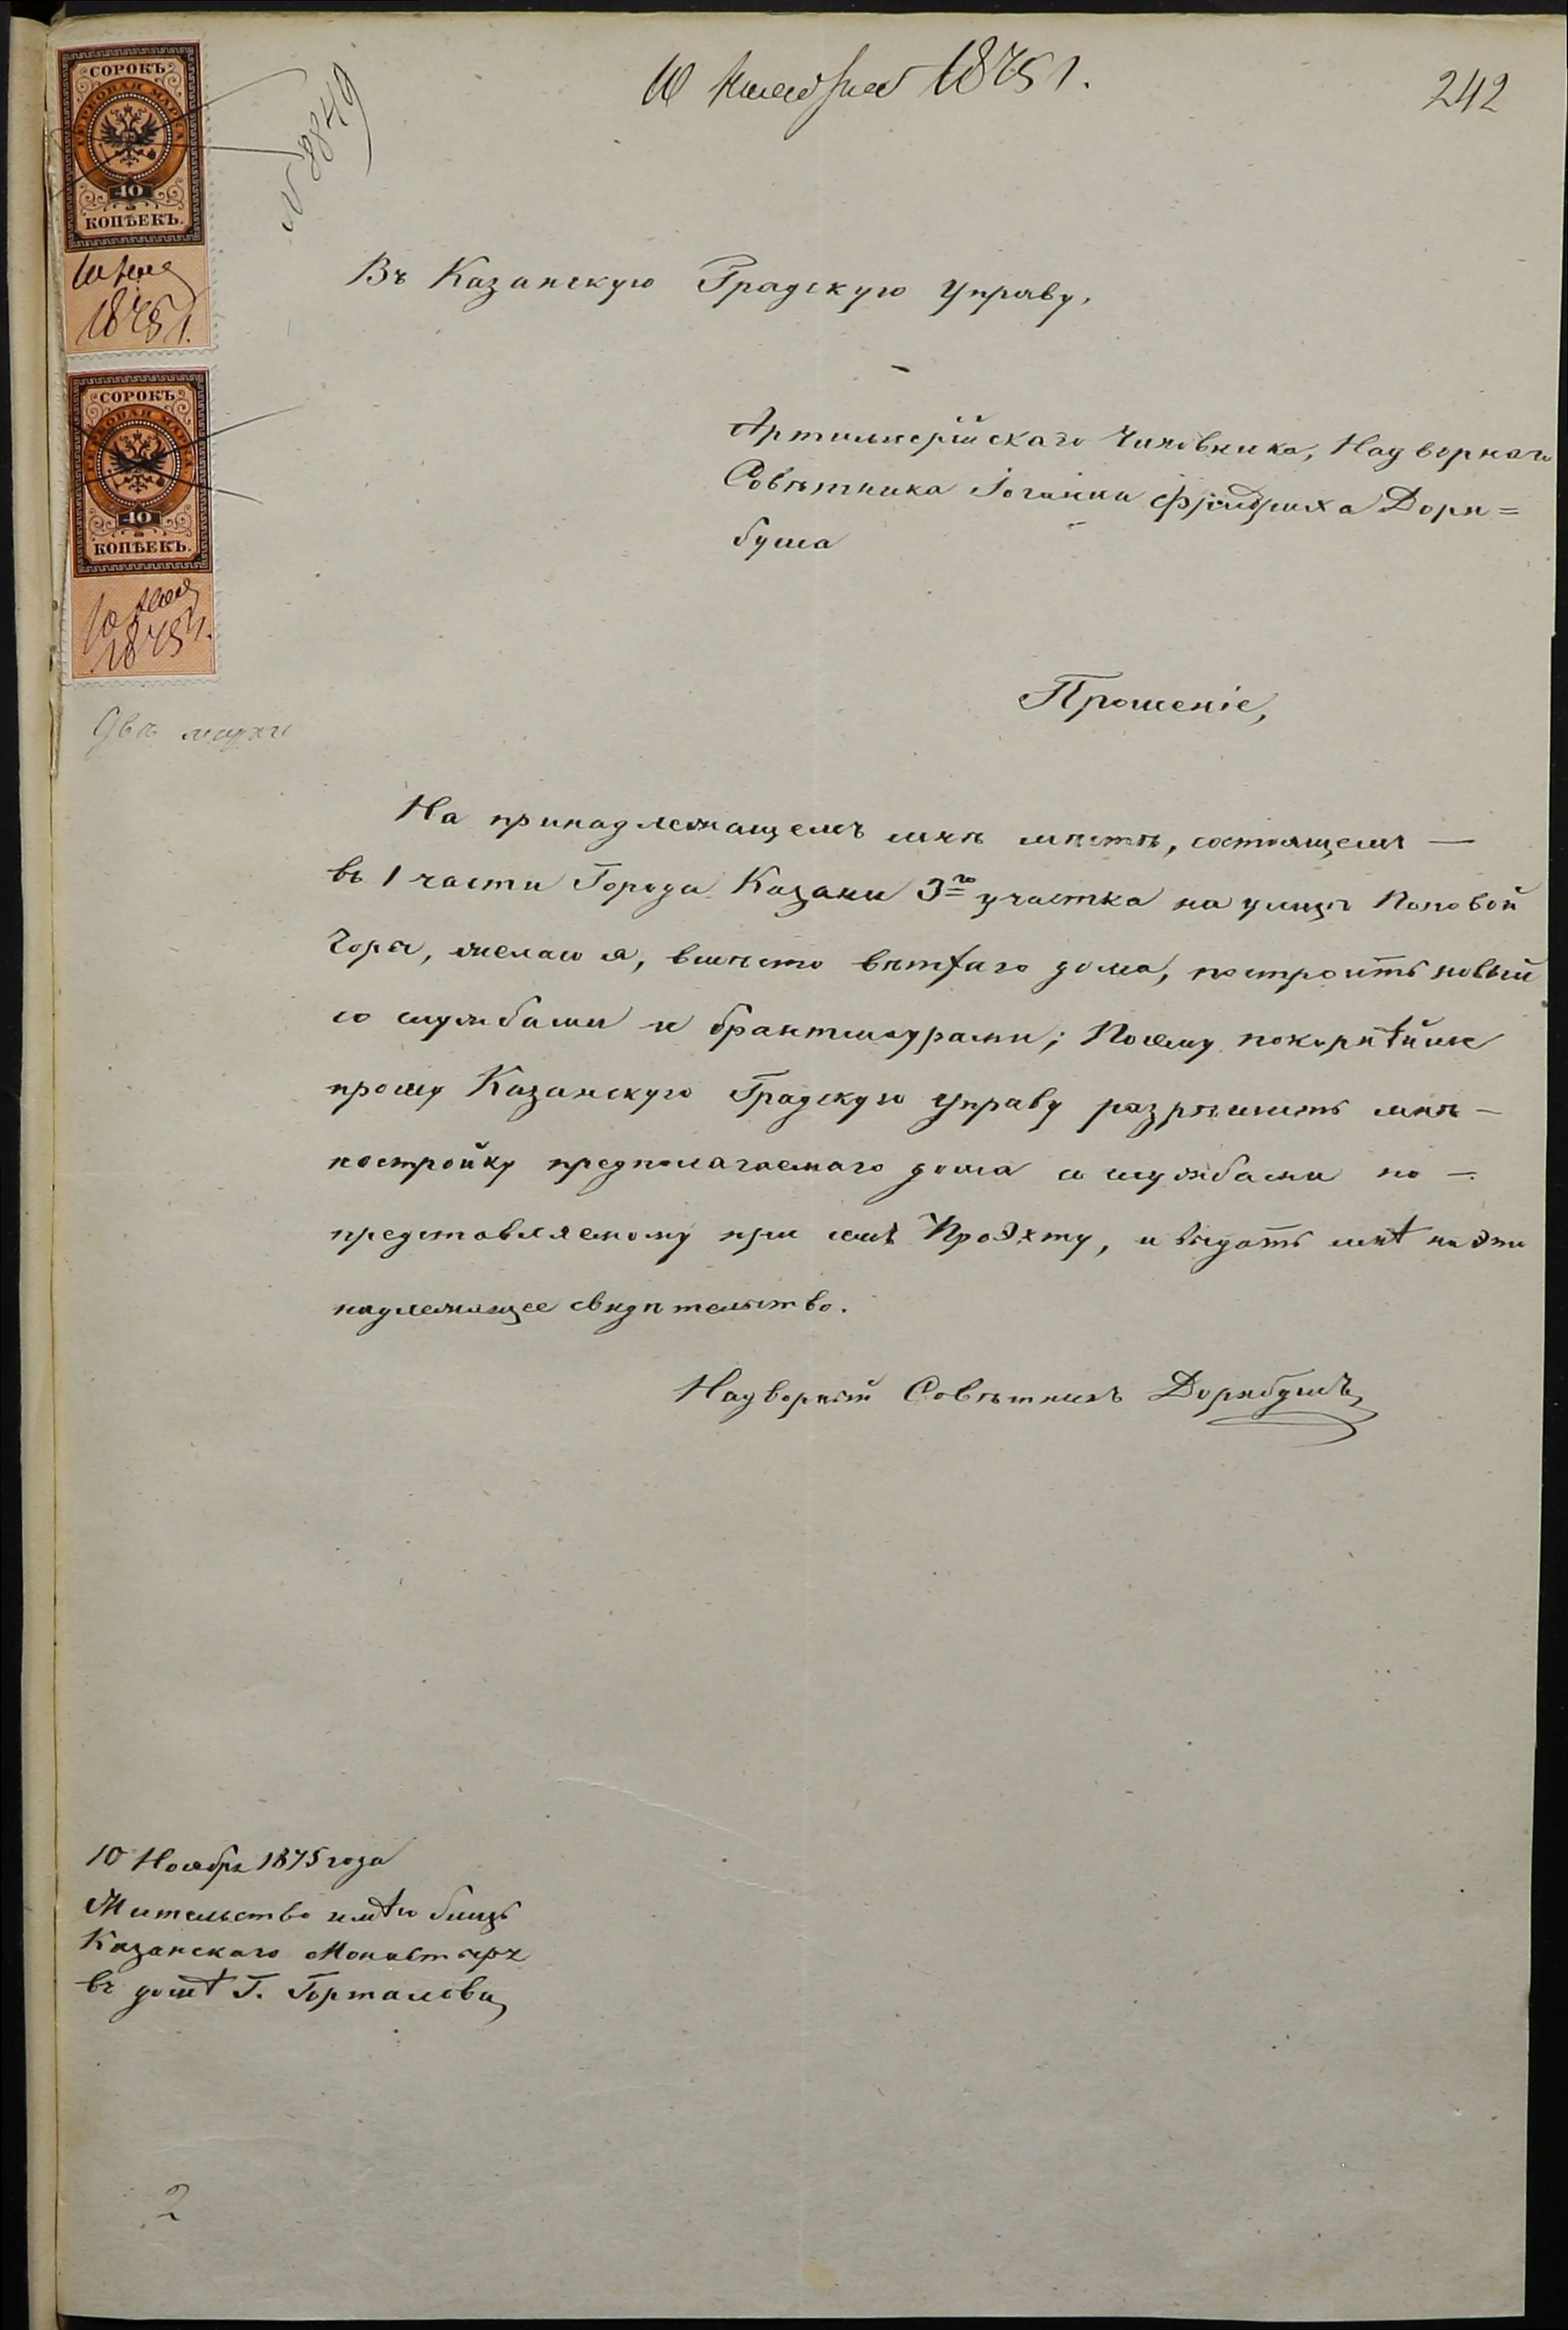 10 Ноября 1875 г.
242
N 8849
СОРОКЪ
ГЕРБОВАЯ МАРКА
40
КОПѢЕКЪ.
10 Ноя
1875 г.
СОРОКЪ
ГЕРБОВАЯ МАРКА
40
КОПѢЕКЪ.
10 Ноя
1875 г.
Двѣ марки
Въ Казанскую Градскую Управу,
Артиллерійскаго Чиновника, Надворнаго
Совѣтника Іоганна Фридриха Дорн=
буша
Прошеніе,
На принадлежащемъ мнѣ мѣстѣ, состоящемъ —
въ 1 части Города Казани 3го участка на улицѣ Поповой
Горы, желаю я, вмѣсто вѣтхаго дома, построить новый
со службами и брантмаурами; Посему покорнѣйше
прошу Казанскую Градскую Управу разрѣшить мнѣ —
постройку предполагаемаго дома со службами по —
представляемому при семъ Проэкту, и выдать мнѣ на это
надлежащее свидѣтельство.
Надворный Совѣтникъ Дорнбушъ
10 Ноября 1875 года
Жительство имѣю близь
Казанскаго Монастыря
въ домѣ Г. Горталова
2